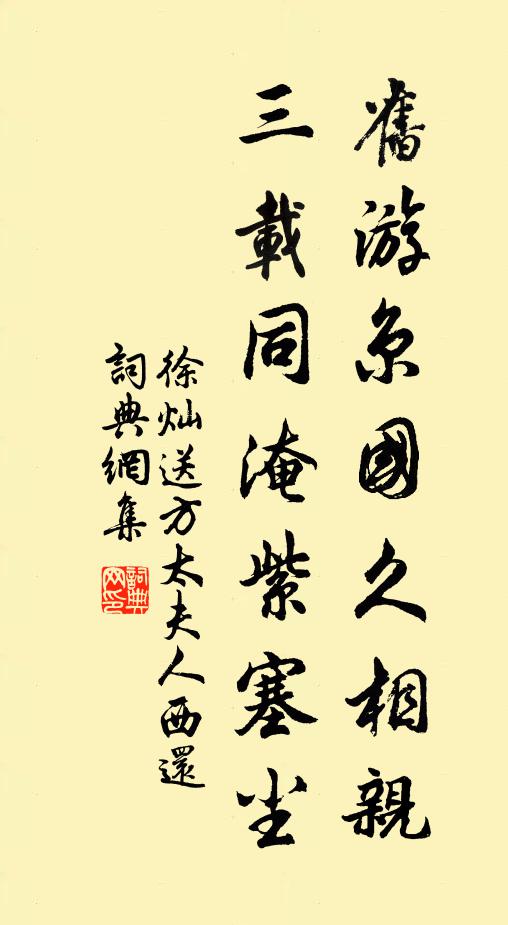 舊游京國久相親
三載同淹紫塞尘
徐灿送方太夫人西還
詞典網集
詞典网印